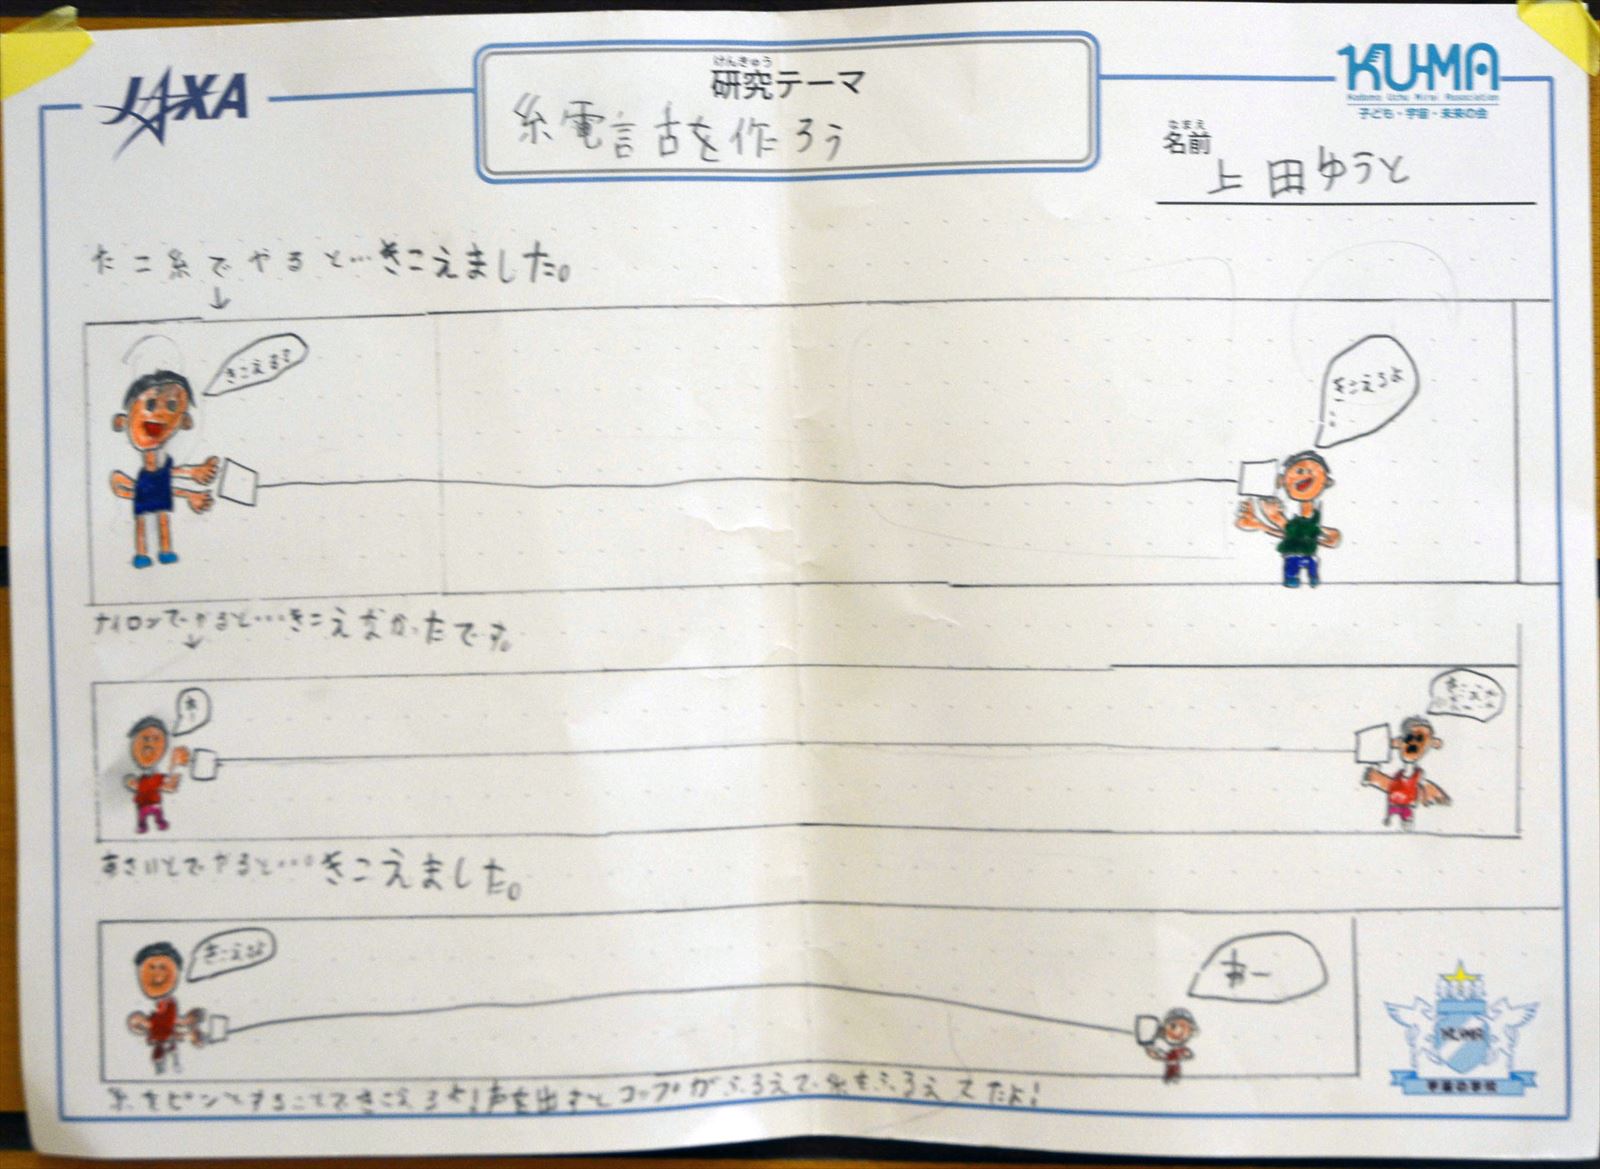 JAXA
けんきゅう
研究テーマ
糸電話を作ろう
KU-MA
Kodomo Uchu Mirai Association
子ども・宇宙・未来の会
なまえ
名前
上田ゆうと
たこ糸でやると…きこえました。
↓
きこえる?
きこえるよ
ナイロンでやると…きこえなかったです。
↓
あさいとでやると…きこえました。
きこえるよ
おー
KU-MA
宇宙の学校
糸をピンとすることできこえるよ!声を出すとコップがふるえて糸もふるえてたよ!